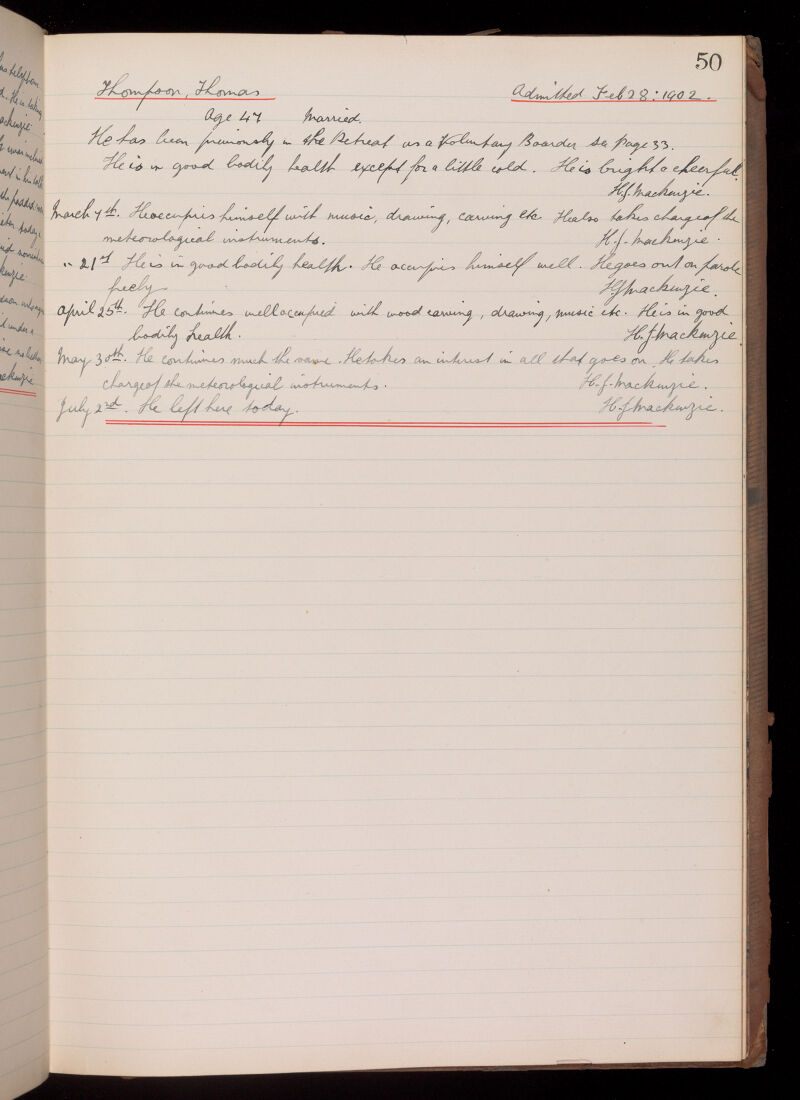 50
Thompson, Thomas Admitted Feb 28: 1902.
Age 47 Married.
He has been previously in the Retreat as a Voluntary Boarder see page 33.
He is in good bodily health except for a little cold. He is bright & cheerful.
H.J. Mackenzie.
March 7th. He occupies himself with music, drawing, carving etc. He also takes charge of the
meteorological instruments. H.J. Mackenzie.
" 21st He is in good bodily health. He occupies himself well. He goes out on parole
freely H.J. Mackenzie.
April 25th. He continues well occupied with wood carving, drawing, music etc. He is in good
bodily health. H.J. Mackenzie.
May 30th. He continues much the same. He takes an interest in all that goes on. He takes
charge of the meteorological instruments. H.J. Mackenzie.
July 2nd. He left here today. H.J. Mackenzie.